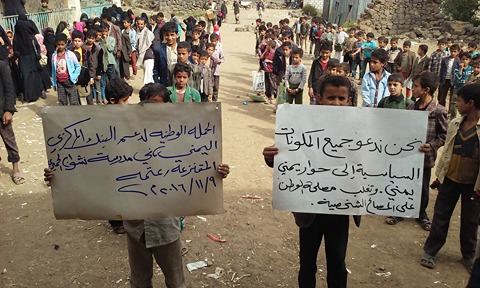 الحملة الوطنية لدعم البنك المركزي
اليمني مدرسة
عتمه
٢٠١٦/١١/٩
نحن ندعو جميع المكونات
السياسية إلى حوار يمني
يمني وتغلب مصلحة الوطن
على المصالح الشخصية.